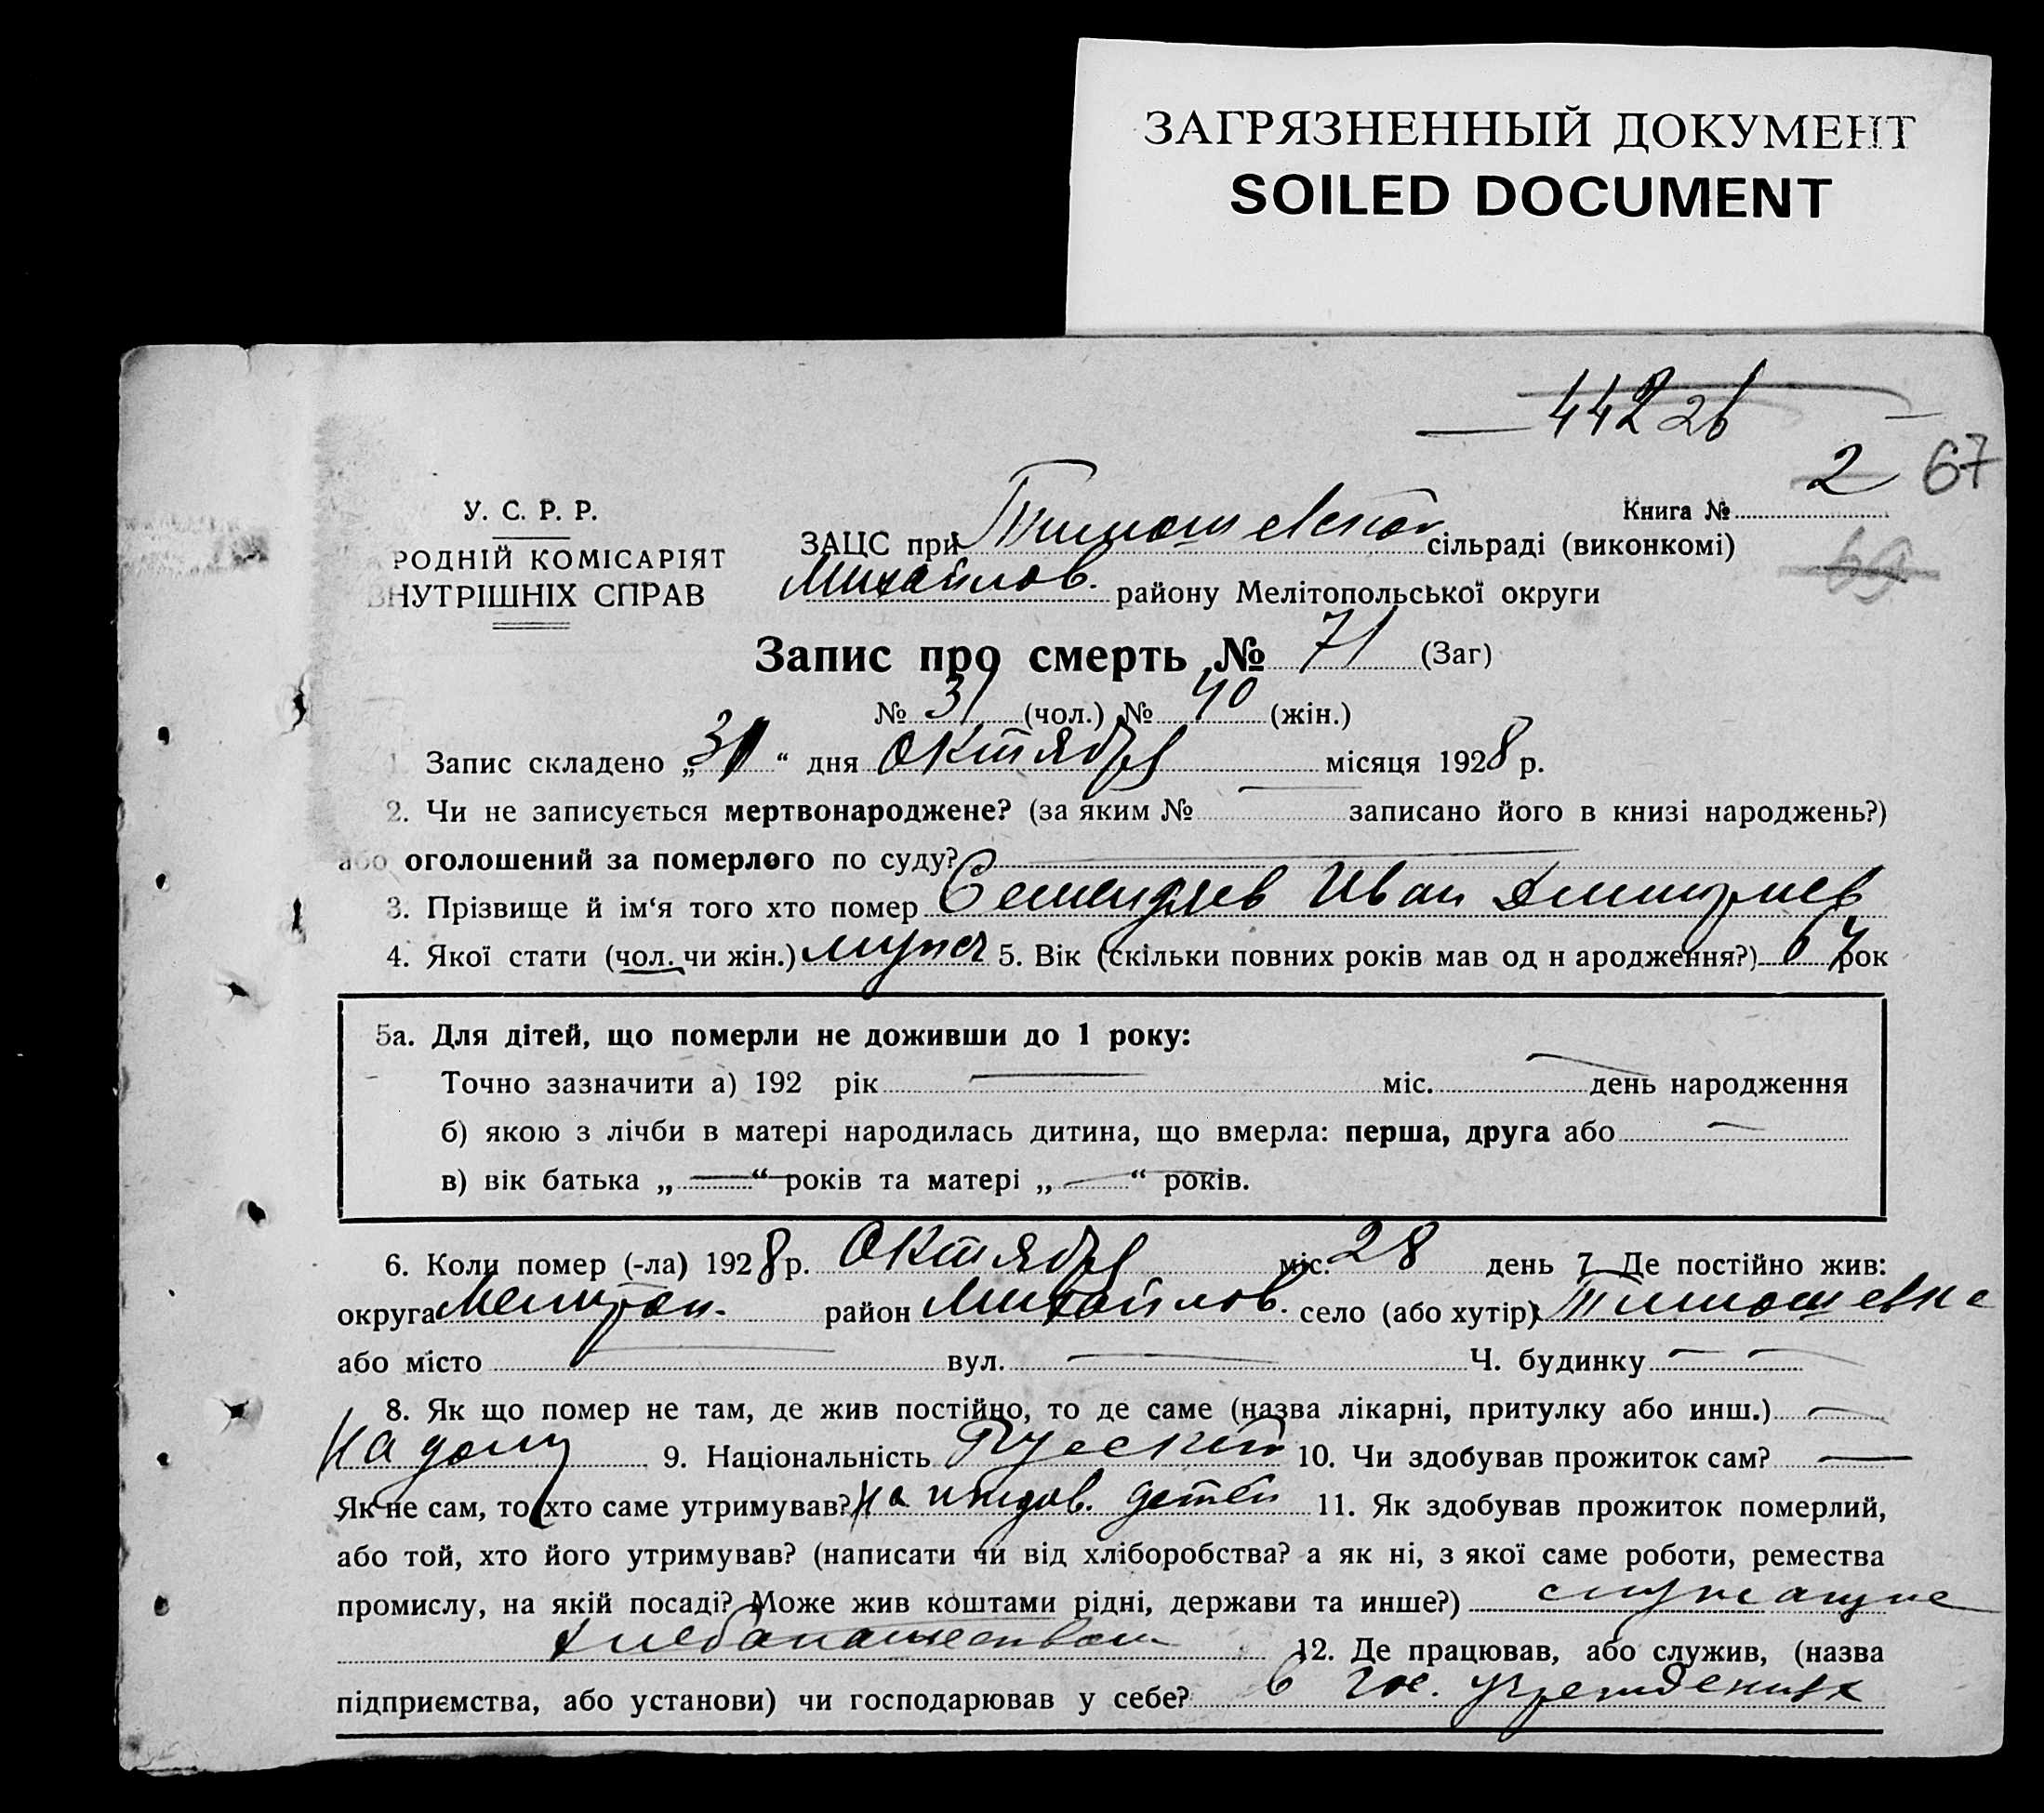 ЗАГРЯЗНЕННЫЙ ДОКУМЕНТ
SOILED DOCUMENT
442 2б
2 67
У. С. Р. Р.
Книга №
РОДНІЙ КОМІСАРІЯТ
ВНУТРІШНІХ СПРАВ
ЗАЦС при Тимошевской сільраді (виконкомі)
69
Михайлов. району Мелітопольської округи
Запис про смерть № 71 (Заг)
№ 31 (чол.) № 40 (жін.)
1. Запис складено „31“ дня Октября місяця 1928 р.
2. Чи не записується мертвонароджене? (за яким № записано його в книзі народжень?)
або оголошений за померлого по суду?
3. Прізвище й ім‘я того хто помер Семендяев Иван Дмитриев
4. Якої стати (чол. чи жін.) мужск 5. Вік (скільки повних років мав од н ародження?) 67 рок
5а. Для дітей, що померли не доживши до 1 року:
Точно зазначити а) 192 рік міс. день народження
б) якою з лічби в матері народилась дитина, що вмерла: перша, друга або
в) вік батька „ — “ років та матері „ — “ років.
6. Коли помер (-ла) 1928 р. Октября міс. 28 день 7. Де постійно жив:
округа Мелитоп. район Михайлов. село (або хутір) Тимошевке
або місто вул. Ч. будинку
8. Як що помер не там, де жив постійно, то де саме (назва лікарні, притулку або инш.)
На дому 9. Національність Руский 10. Чи здобував прожиток сам? —
Як не сам, то хто саме утримував? На иждив. детей 11. Як здобував прожиток померлий,
або той, хто його утримував? (написати чи від хліборобства? а як ні, з якої саме роботи, ремества
промислу, на якій посаді? Може жив коштами рідні, держави та инше?) служащие
хлебопашеством 12. Де працював, або служив, (назва
підприємства, або установи) чи господарював у себе? в гос. учреждениях